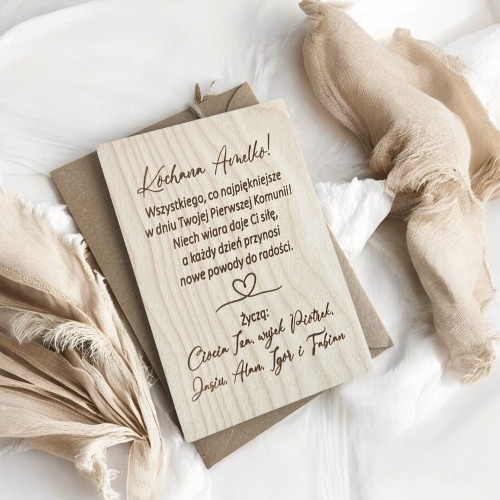 Kochana Amelko!
Wszystkiego, co najpiękniejsze
w dniu Twojej Pierwszej Komunii!
Niech wiara daje Ci siłę,
a każdy dzień przynosi
nowe powody do radości.
Życzą:
Ciocia, Iza, wujek Piotrek,
Jasiu, Alan, Igor i Fabian